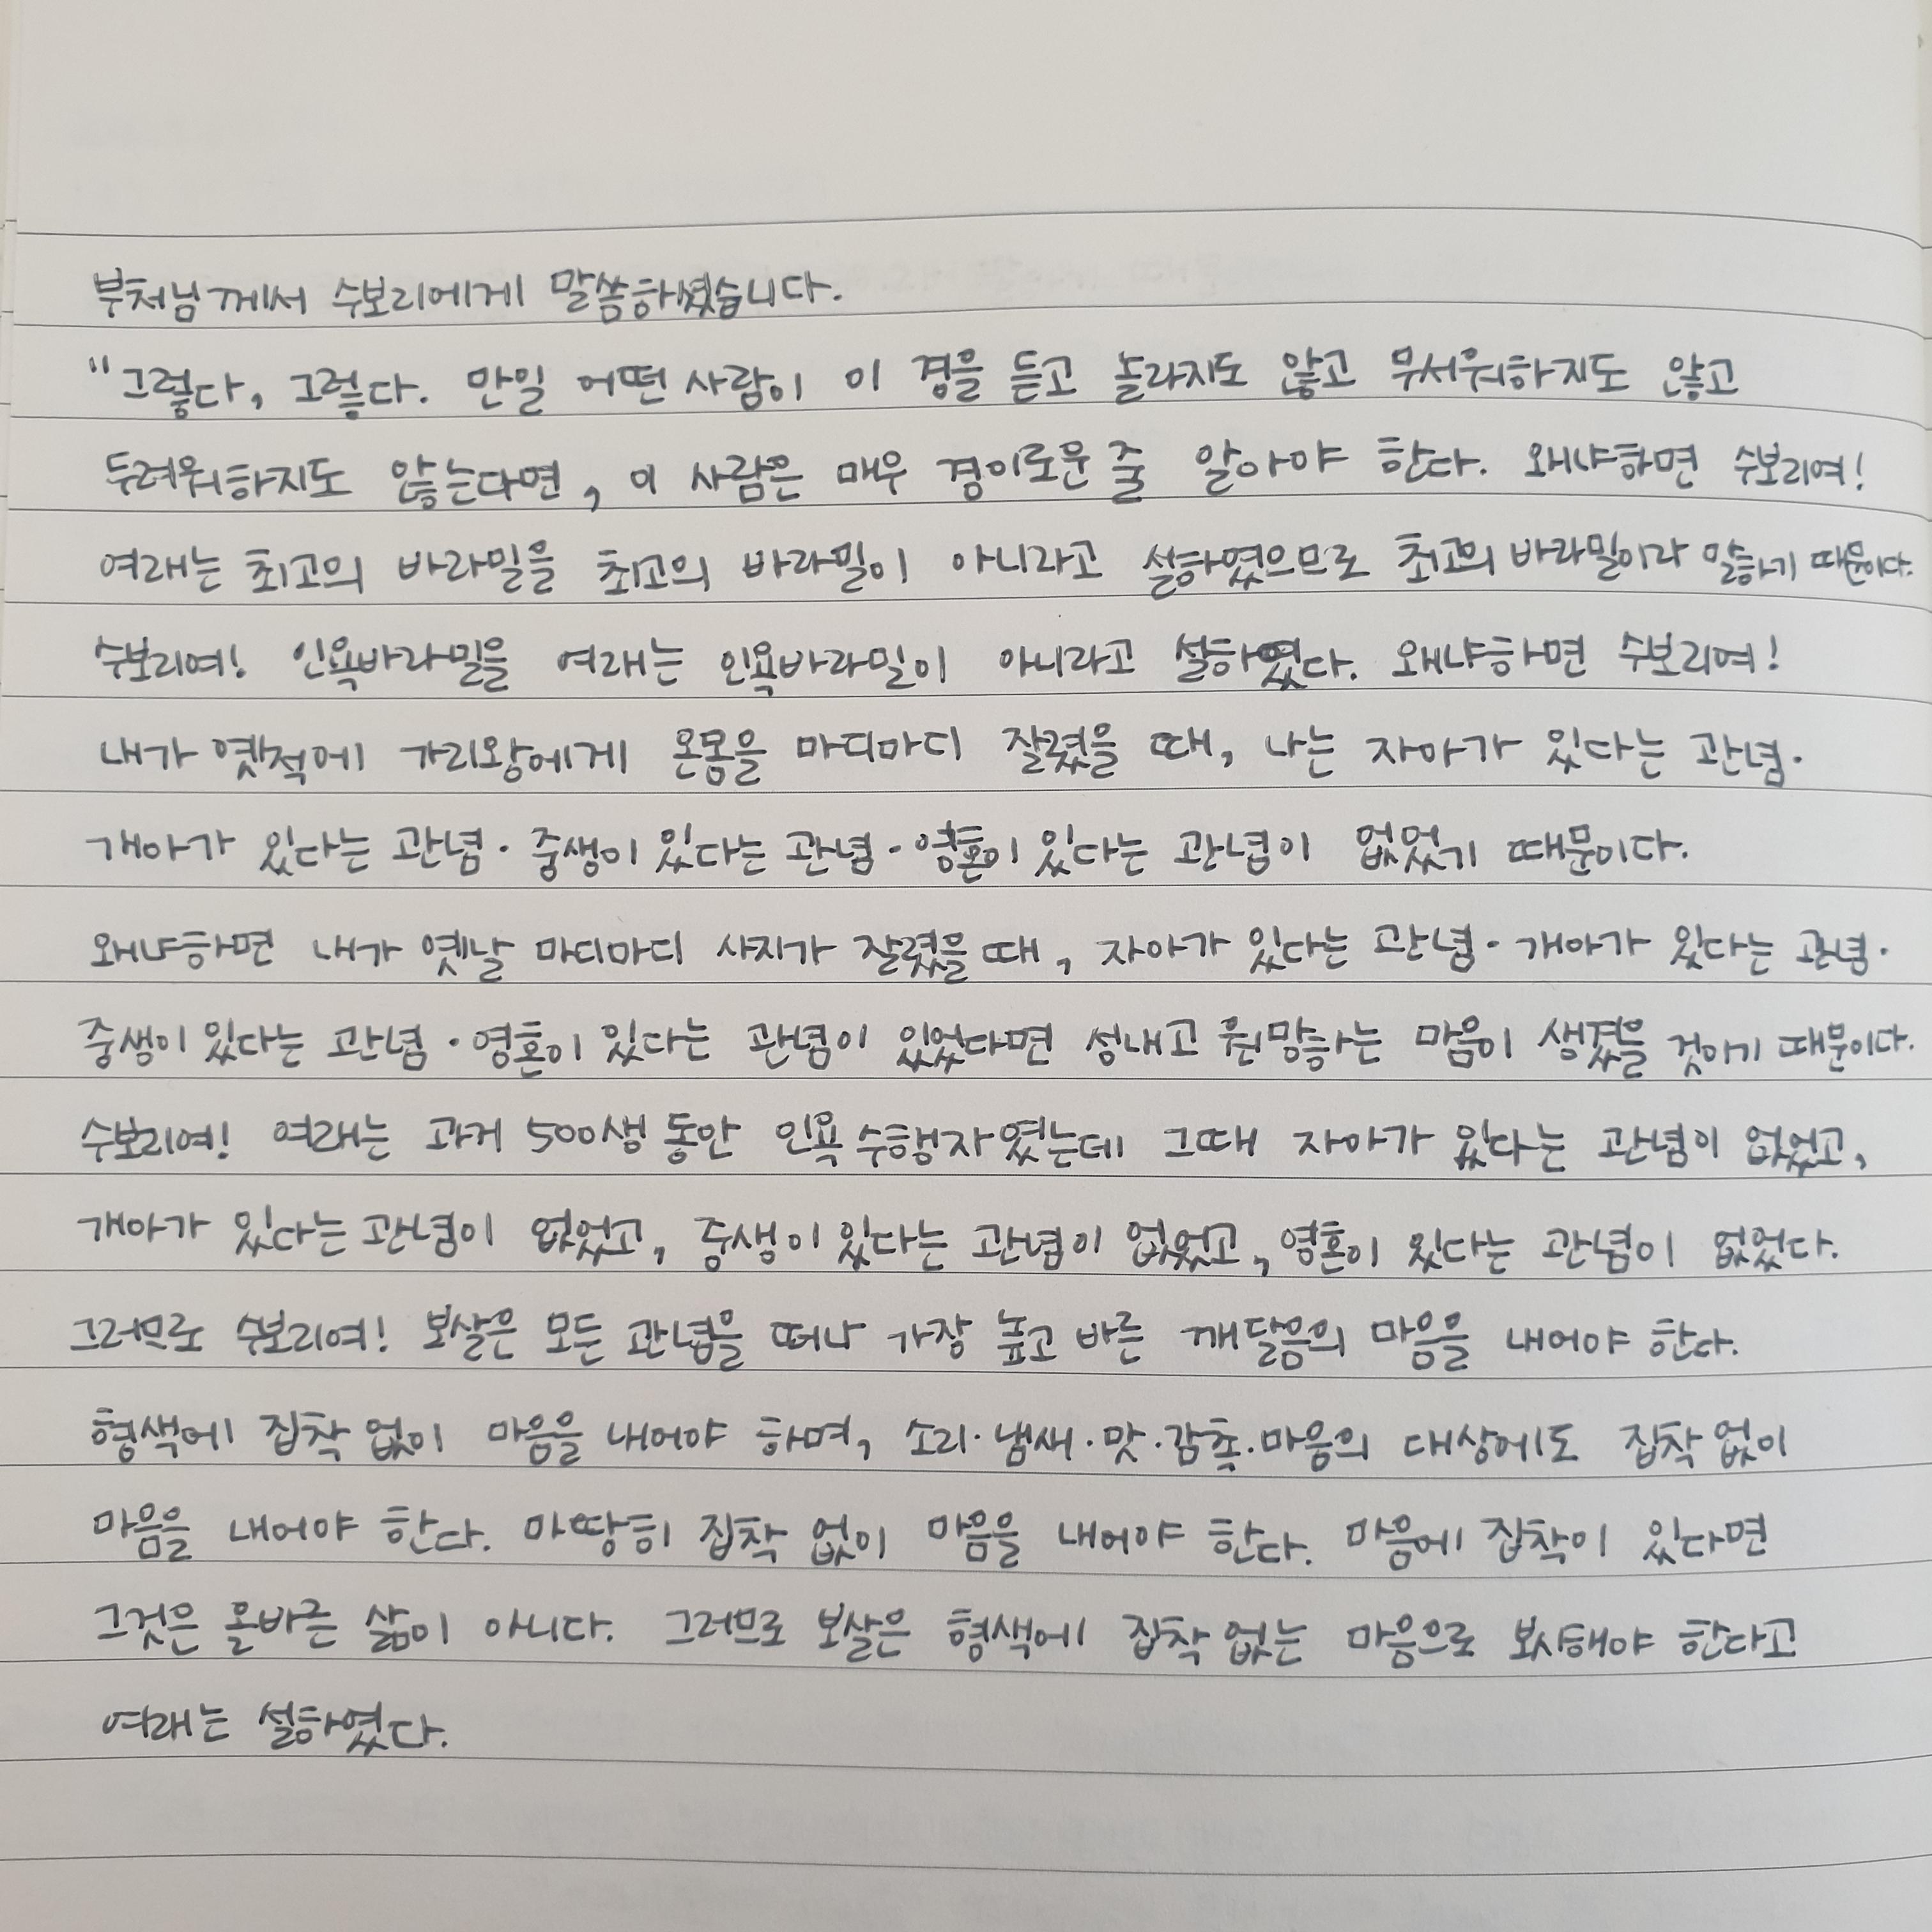 부처님께서 수보리에게 말씀하셨습니다.
"그렇다, 그렇다. 만일 어떤 사람이 이 경을 듣고 놀라지도 않고 무서워하지도 않고
두려워하지도 않는다면, 이 사람은 매우 경이로운 줄 알아야 한다. 왜냐하면 수보리여!
여래는 최고의 바라밀을 최고의 바라밀이 아니라고 설하였으므로 최고의 바라밀이라 말하기 때문이다.
수보리여! 인욕바라밀을 여래는 인욕바라밀이 아니라고 설하였다. 왜냐하면 수보리여!
내가 옛적에 가리왕에게 온몸을 마디마디 잘렸을 때, 나는 자아가 있다는 관념·
개아가 있다는 관념·중생이 있다는 관념·영혼이 있다는 관념이 없었기 때문이다.
왜냐하면 내가 옛날 마디마디 사지가 잘렸을 때, 자아가 있다는 관념·개아가 있다는 관념·
중생이 있다는 관념·영혼이 있다는 관념이 있었다면 성내고 원망하는 마음이 생겼을 것이기 때문이다.
수보리여! 여래는 과거 500생 동안 인욕 수행자였는데 그때 자아가 있다는 관념이 없었고,
개아가 있다는 관념이 없었고, 중생이 있다는 관념이 없었고, 영혼이 있다는 관념이 없었다.
그러므로 수보리여! 보살은 모든 관념을 떠나 가장 높고 바른 깨달음의 마음을 내어야 한다.
형색에 집착 없이 마음을 내어야 하며, 소리·냄새·맛·감촉·마음의 대상에도 집착 없이
마음을 내어야 한다. 마땅히 집착 없이 마음을 내어야 한다. 마음에 집착이 있다면
그것은 올바른 삶이 아니다. 그러므로 보살은 형색에 집착 없는 마음으로 보시해야 한다고
여래는 설하였다.